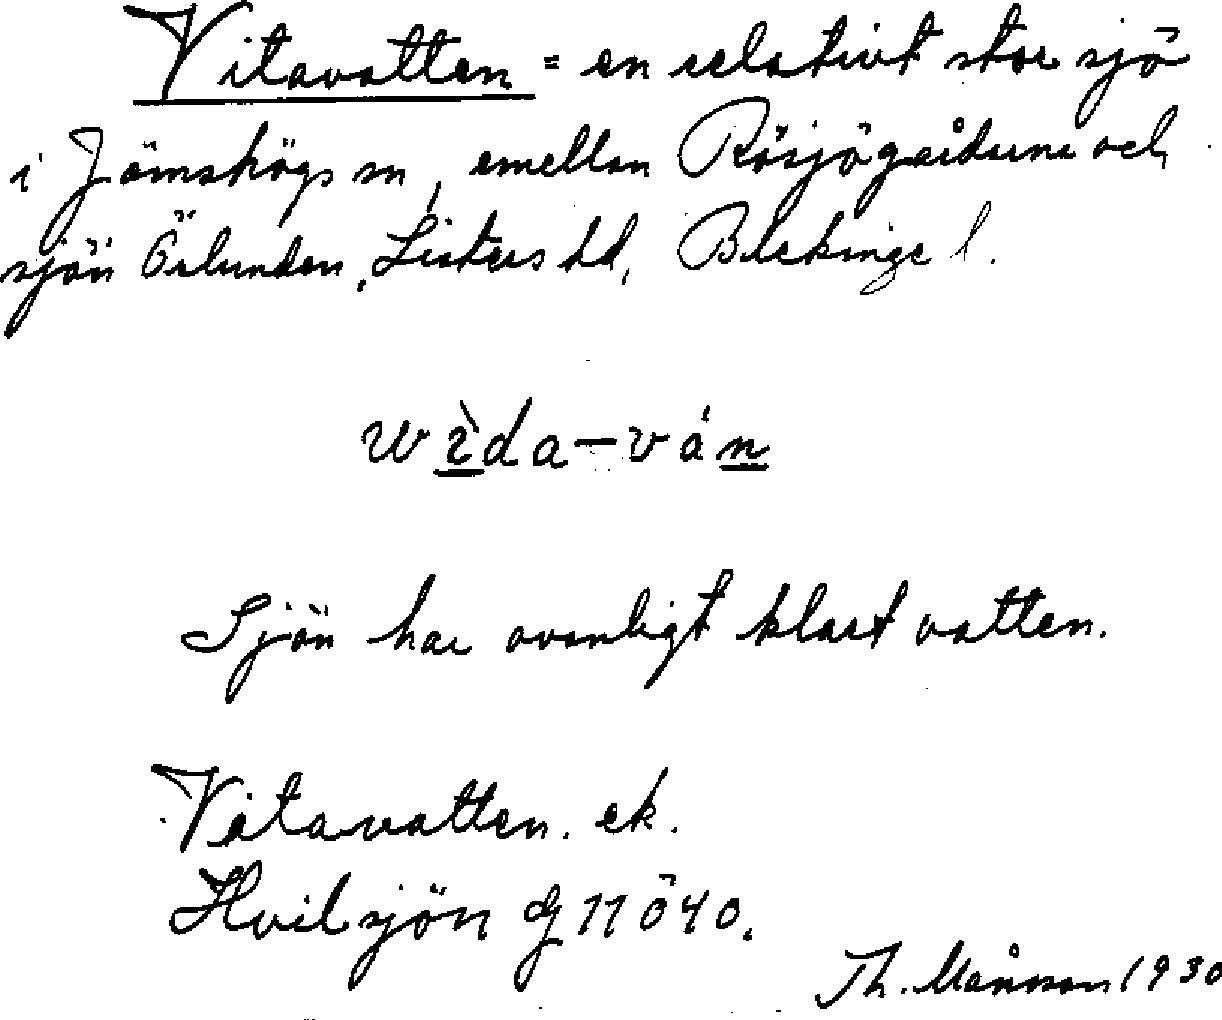 Vitavatten = en relativt stor sjö
i Jämshögs sn, emellan Rösjögårdarne och
sjön Örlunden, Listers hd, Blekinge l.
wìda-ván
Sjön har ovanligt klart vatten.
Vitavatten. ek.
Hvilsjön g 11 ö 40.
Th. Månsson 1930